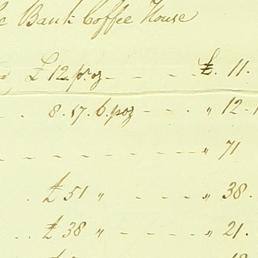 Bank Coffee House
£12 pr oz - - - - £. 11.
8.17.6. p oz - - - " 12.
- - - - - - - - " 71
£51 " - - - - - " 38.
£38 " - - - - - " 21.